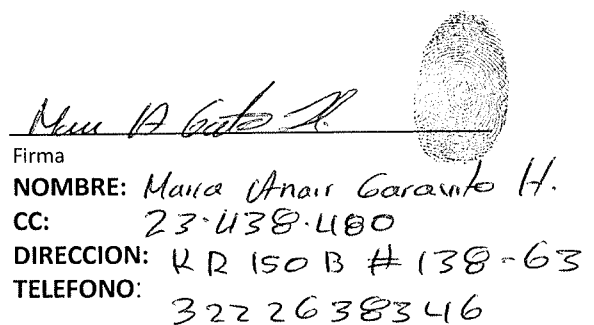 Firma
NOMBRE: Maria Anair Garavito H.
CC: 23.438.480
DIRECCION: KR 150 B # 138-63
TELEFONO: 3222638346